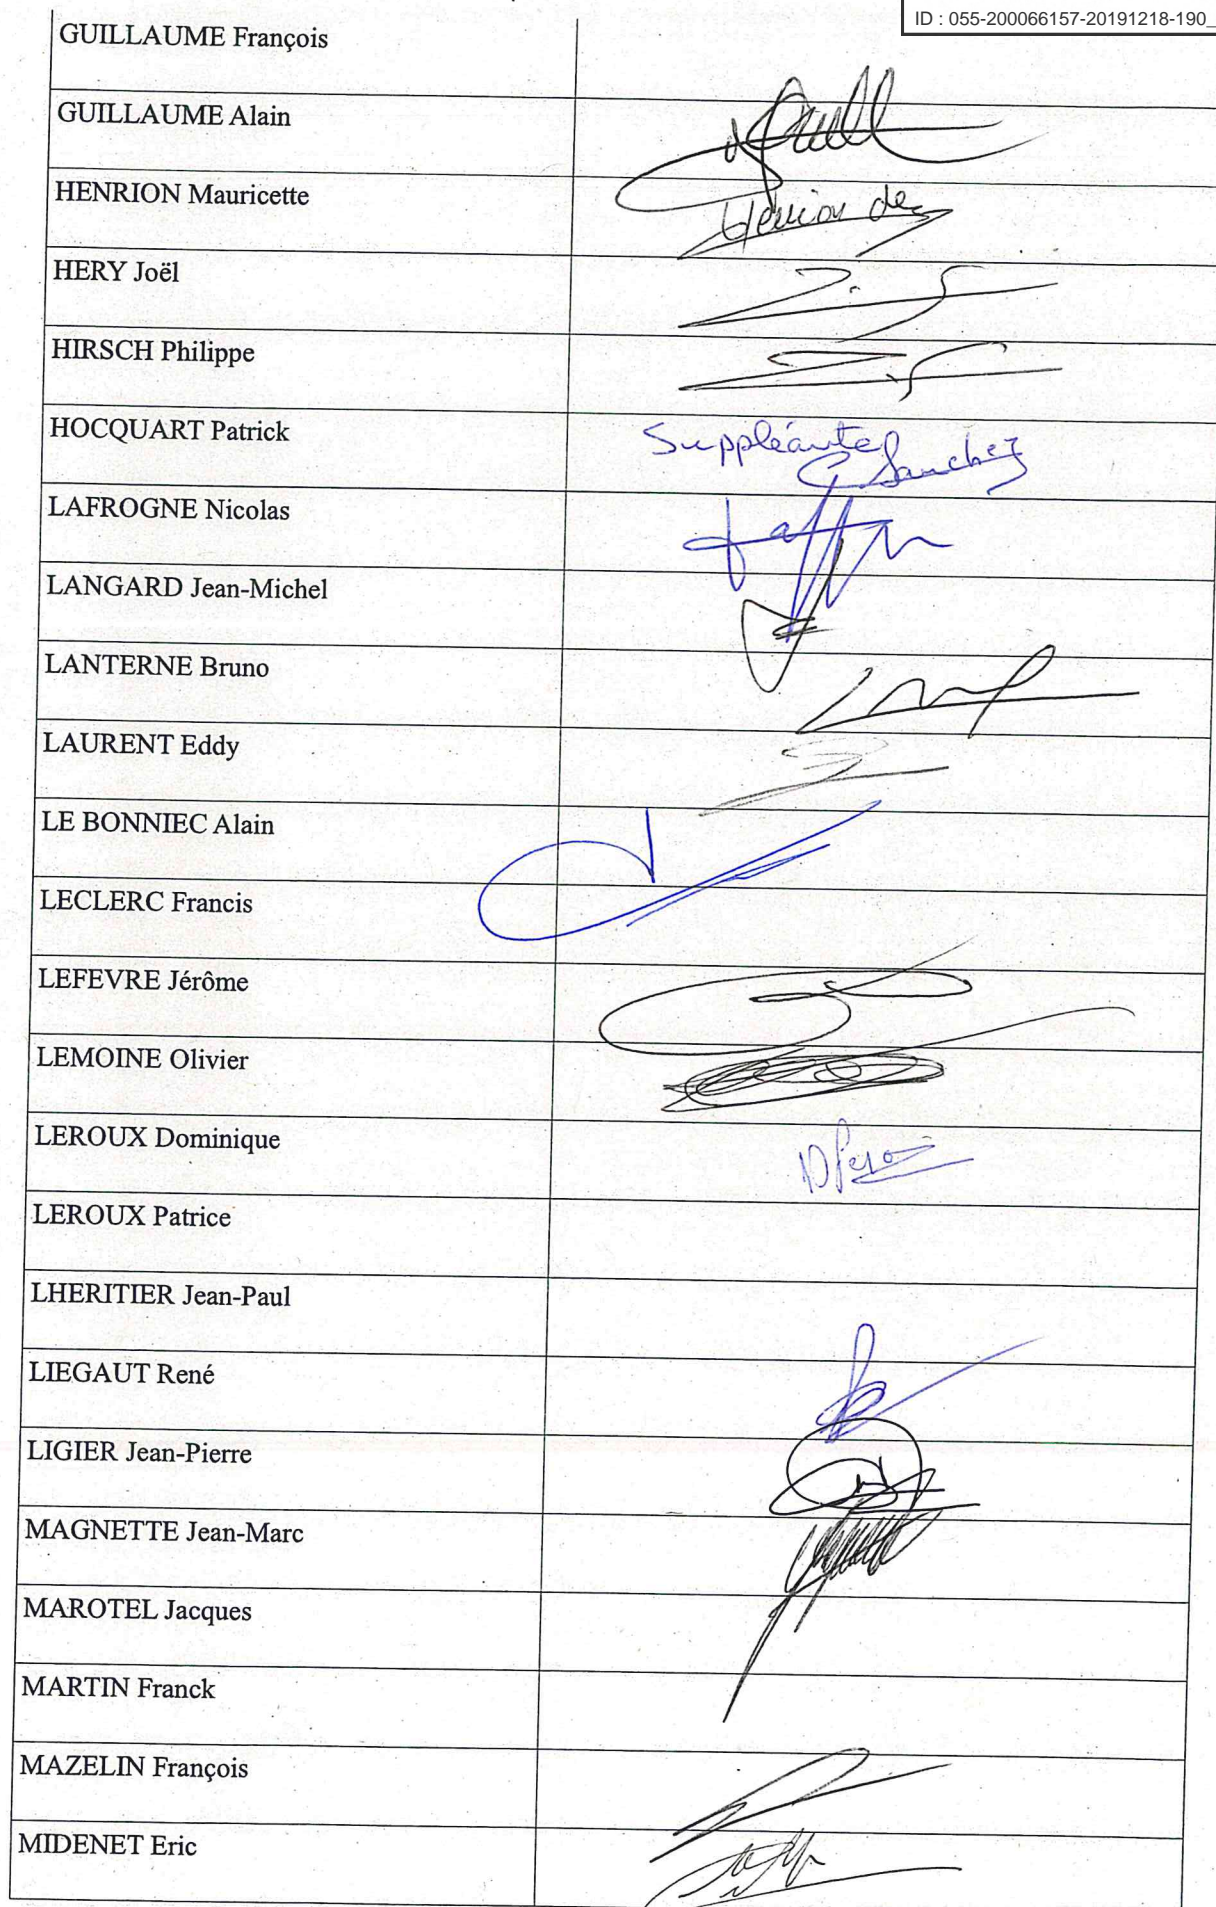 ID : 055-200066157-20191218-190_
GUILLAUME François
GUILLAUME Alain
HENRION Mauricette
HERY Joël
HIRSCH Philippe
HOCQUART Patrick
Suppléante
C Sanchez
LAFROGNE Nicolas
LANGARD Jean-Michel
LANTERNE Bruno
LAURENT Eddy
LE BONNIEC Alain
LECLERC Francis
LEFEVRE Jérôme
LEMOINE Olivier
LEROUX Dominique
LEROUX Patrice
LHERITIER Jean-Paul
LIEGAUT René
LIGIER Jean-Pierre
MAGNETTE Jean-Marc
MAROTEL Jacques
MARTIN Franck
MAZELIN François
MIDENET Eric